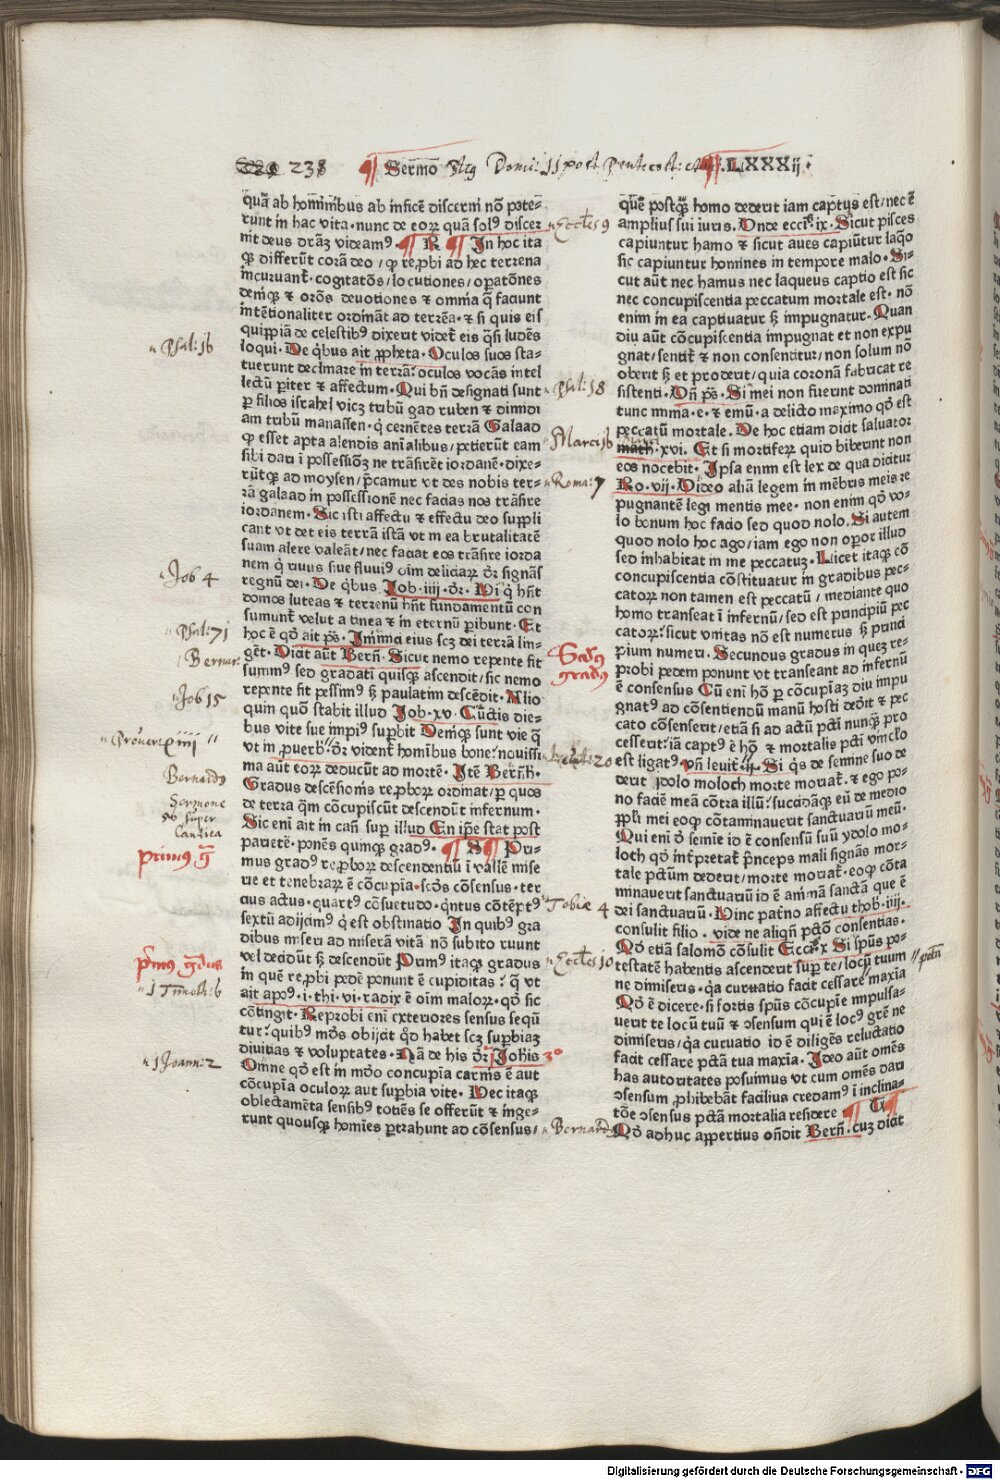 238 ¶ Sermo Domi: 11 post Pentecost: ¶ .LXXXij.
quā ab hominibus ab inficē discerni nō pote-
runt in hac vita. nunc de eorꝝ quā solꝰ discer
nit deus drāz videamꝰ. ¶ R ¶ In hoc ita
qꝫ differūt corā deo / qꝛ reꝓbi ad hec terrena
incuruant᷑. cogitatōs / locutiones / oꝑatōnes
deniqꝫ ⁊ orōs deuotiones ⁊ omnia q̄ faciunt
intētionaliter ordināt ad terrēa. ⁊ si quis eis
quippiā de celestibꝰ dixerit videt᷑ eis q̄si ludēs
loqui. De qͥbus ait ꝓpheta. Oculos suos sta-
tuerunt declinare in terrā. oculos vocās intel
lectū ꝑiter ⁊ affectum. Qui bn̄ designati sunt
ꝑ filios israhel vicz tribū gad ruben ⁊ dimidi
am tribū manassen. qͥ cernētes terrā Galaad
ꝙ esset apta alendis aīalibus / petierūt eam
sibi dari ī possessiōꝫ ne trāsirēt iordanē. dixe-
rūtqꝫ ad moysen / p̄camur vt des nobis ter-
rā galaad in possessionē nec facias nos trāsire
iordanem. Sic isti affectu ⁊ effectu deo suppli
cant vt det eis terrā istā vt in ea brutalitatē
suam alere valeāt / nec faciat eos trāsire iorda
nem qͥ riuus siue fluuiꝰ oim deliciarꝝ dr̄ signās
regnū dei. De qͥbus Job .iiij. dr̄. Hi qͥ hn̄t
domos luteas ⁊ terrenū hn̄t fundamentū con
sumunt᷑ velut a tinea ⁊ in eternū ꝑibunt. Et
hoc ē qd̄ ait ps̄. Inimici eius scz dei terrā lin-
gēt. Dicit aūt Bern̄. Sicut nemo repente fit
summꝰ sed gradati quisqꝫ ascendit / sic nemo
repente fit pessimꝰ sꝫ paulatim descēdit. Alio
quin quō stabit illud Job .xv. Cūctis die-
bus vite sue impiꝰ suꝑbit Deniqꝫ sunt vie q̄
vt in ꝓuerbꝰ dr̄ vident᷑ homībus bone. nouissi
ma aūt eorꝝ deducūt ad mortē. Itē Bern̄h.
Gradus descēsionis reꝓborꝝ ordinat / ꝑ quos
de terra qm̄ cōcupiscūt descendūt infernum.
Sic eni ait in can̄. suꝑ illud En ip̄e stat post
parietē. ponēs quinqꝫ gradꝰ. ¶ S ¶ Pri-
mus gradꝰ reꝓborꝝ descendentiū ī vallē mise
rie et tenebrarꝝ ē cōcupīa. scd̄s cōsensus. ter
cius actus. quartꝰ cōsuetudo. qͥntus cōtēptꝰ
sextū adijcimꝰ qͥ est obstinatio In quibꝰ gra
dibus miseri ad miserā vitā nō subito ruunt
vel decidūt sꝫ descendūt Primꝰ itaqꝫ gradus
in quē reꝓbi pedē ponunt ē cupiditas. q̄ vt
ait apoꝰ .i. thi .vi. radix ē oīm malorꝝ. qd̄ sic
cōtingit. Reprobi eni exteriores sensus sequū
tur. quibꝰ mūdꝰ obijcit qd̄ habet scz suꝑbiaz
diuitias ⁊ voluptates. Nā de his dr̄ Johis
Omne qd̄ est in mūdo concupīa carnis ē aut
cōcupīa oculorꝝ aut suꝑbia vite. Hec itaqꝫ
oblectamēta sensibꝰ totiēs se offerūt ⁊ inge-
runt quousqꝫ homies ꝑtrahunt ad cōsensus /
quē postqꝫ homo dederit iam captus est / nec ē
amplius sui iuris. Unde ecciͨ. ix. Sicut pisces
capiuntur hamo ⁊ sicut aues capiūtur laq̄o
sic capiuntur homines in tempore malo. Si-
cut aūt nec hamus nec laqueus captio est sic
nec concupiscentia peccatum mortale est. nō
enim in ea captiuatur sꝫ impugnatur. Quan
diu aūt cōcupiscentia impugnat et non expu
gnat / sentit᷑ ⁊ non consentitur / non solum nō
oberit sꝫ et proderit / quia coronā fabricat re
sistenti. Un̄ ps̄. Si mei non fuerint dominati
tunc imma. e. ⁊ emū. a delicto maximo qd̄ est
peccatū mortale. De hoc etiam dicit saluator
math. xvi. Et si mortiferꝝ quid biberint non
eos nocebit. Ipsa enim est lex de qua dicitur
Ro. vij. Uideo aliā legem in mēbris meis re
pugnantē legi mentis mee. non enim qd̄ vo-
lo bonum hoc facio sed quod nolo. Si autem
quod nolo hoc ago / iam ego non oꝑor illud
sed inhabitat in me peccatuꝫ. Licet itaqꝫ cō
concupiscentia cōstituatur in gradibus pec-
catorꝝ non tamen est peccatū / mediante quo
homo transeat ī infernū / sed est principiū pec
catorꝝ. sicut vnitas nō est numerus sꝫ princi
pium numeri. Secundus gradus in quez re-
probi pedem ponunt vt transeant ad infernū
ē consensus Cū eni hō ꝑ cōcupīaꝫ diu impu
gnatꝰ ad cōsentiendū manū hosti dedit ⁊ pec
cato cōsenserit / etiā si ad actū pcti nunqꝫ pro
cesserit. iā captꝰ ē hō ⁊ mortalis pcti vinclo
est ligatꝰ. vn̄ leuit. Si qͥs de semine suo de
derit ydolo moloch morte moriat᷑. ⁊ ego po-
no faciē meā cōtra illū. succidāqꝫ eū de medio
ppli mei eoqꝫ cōtaminauerit sanctuariū meū.
Qui eni d̄ semīe id ē consensū suū ydolo mo-
loch qd̄ int̄pretat᷑ p̄nceps mali signās mor-
tale pctūm dederit / morte moriat᷑. eoqꝫ cōta
minauerit sanctuariū id ē animā sanctā que ē
dei sanctuariū. Hinc patꝛno affectu thob. iiij.
consulit filio. vide ne aliqn̄ pctō consentias.
Qd̄ etiā salomō cōsulit Ecciͨ. x Si spūs po-
testatē habentis ascenderit suꝑ te / locū tuum
ne dimiseris. qꝛ curatio facit cessare maxia
Qd̄ ē dicere. si fortis spūs cōcupīe impulsa-
uerit te locū tuū ⁊ ↄsensum qui ē locꝰ grē ne
dimiseris / qꝛ curatio id ē diligēs reluctatio
facit cessare pctā tua maxīa. Ideo aūt omēs
has autoritates posuimus vt cum omēs dari
ↄsensum ꝓhibebāt facilius credamꝰ ī inclina-
tōe ↄsensus pctā mortalia residere ¶ T ¶
Qd̄ adhuc apꝑtius on̄dit Bern̄. cuꝫ dicit
Psal: 16
Job 4
Psal: 71
Bernar:
Job 15
Prouer: xiiii
Bernardꝰ
Sermone
56 super
Cantica
primus gͣ
p̄mus gͣdus
1 Timoth: 6
1 Joann: 2
Eccles 9
Psal: 18
Marci 16
Roma: 7
Scd̄us
gradus
Leuit: 20
Tobiæ 4
Eccles 10
Bernard
3º